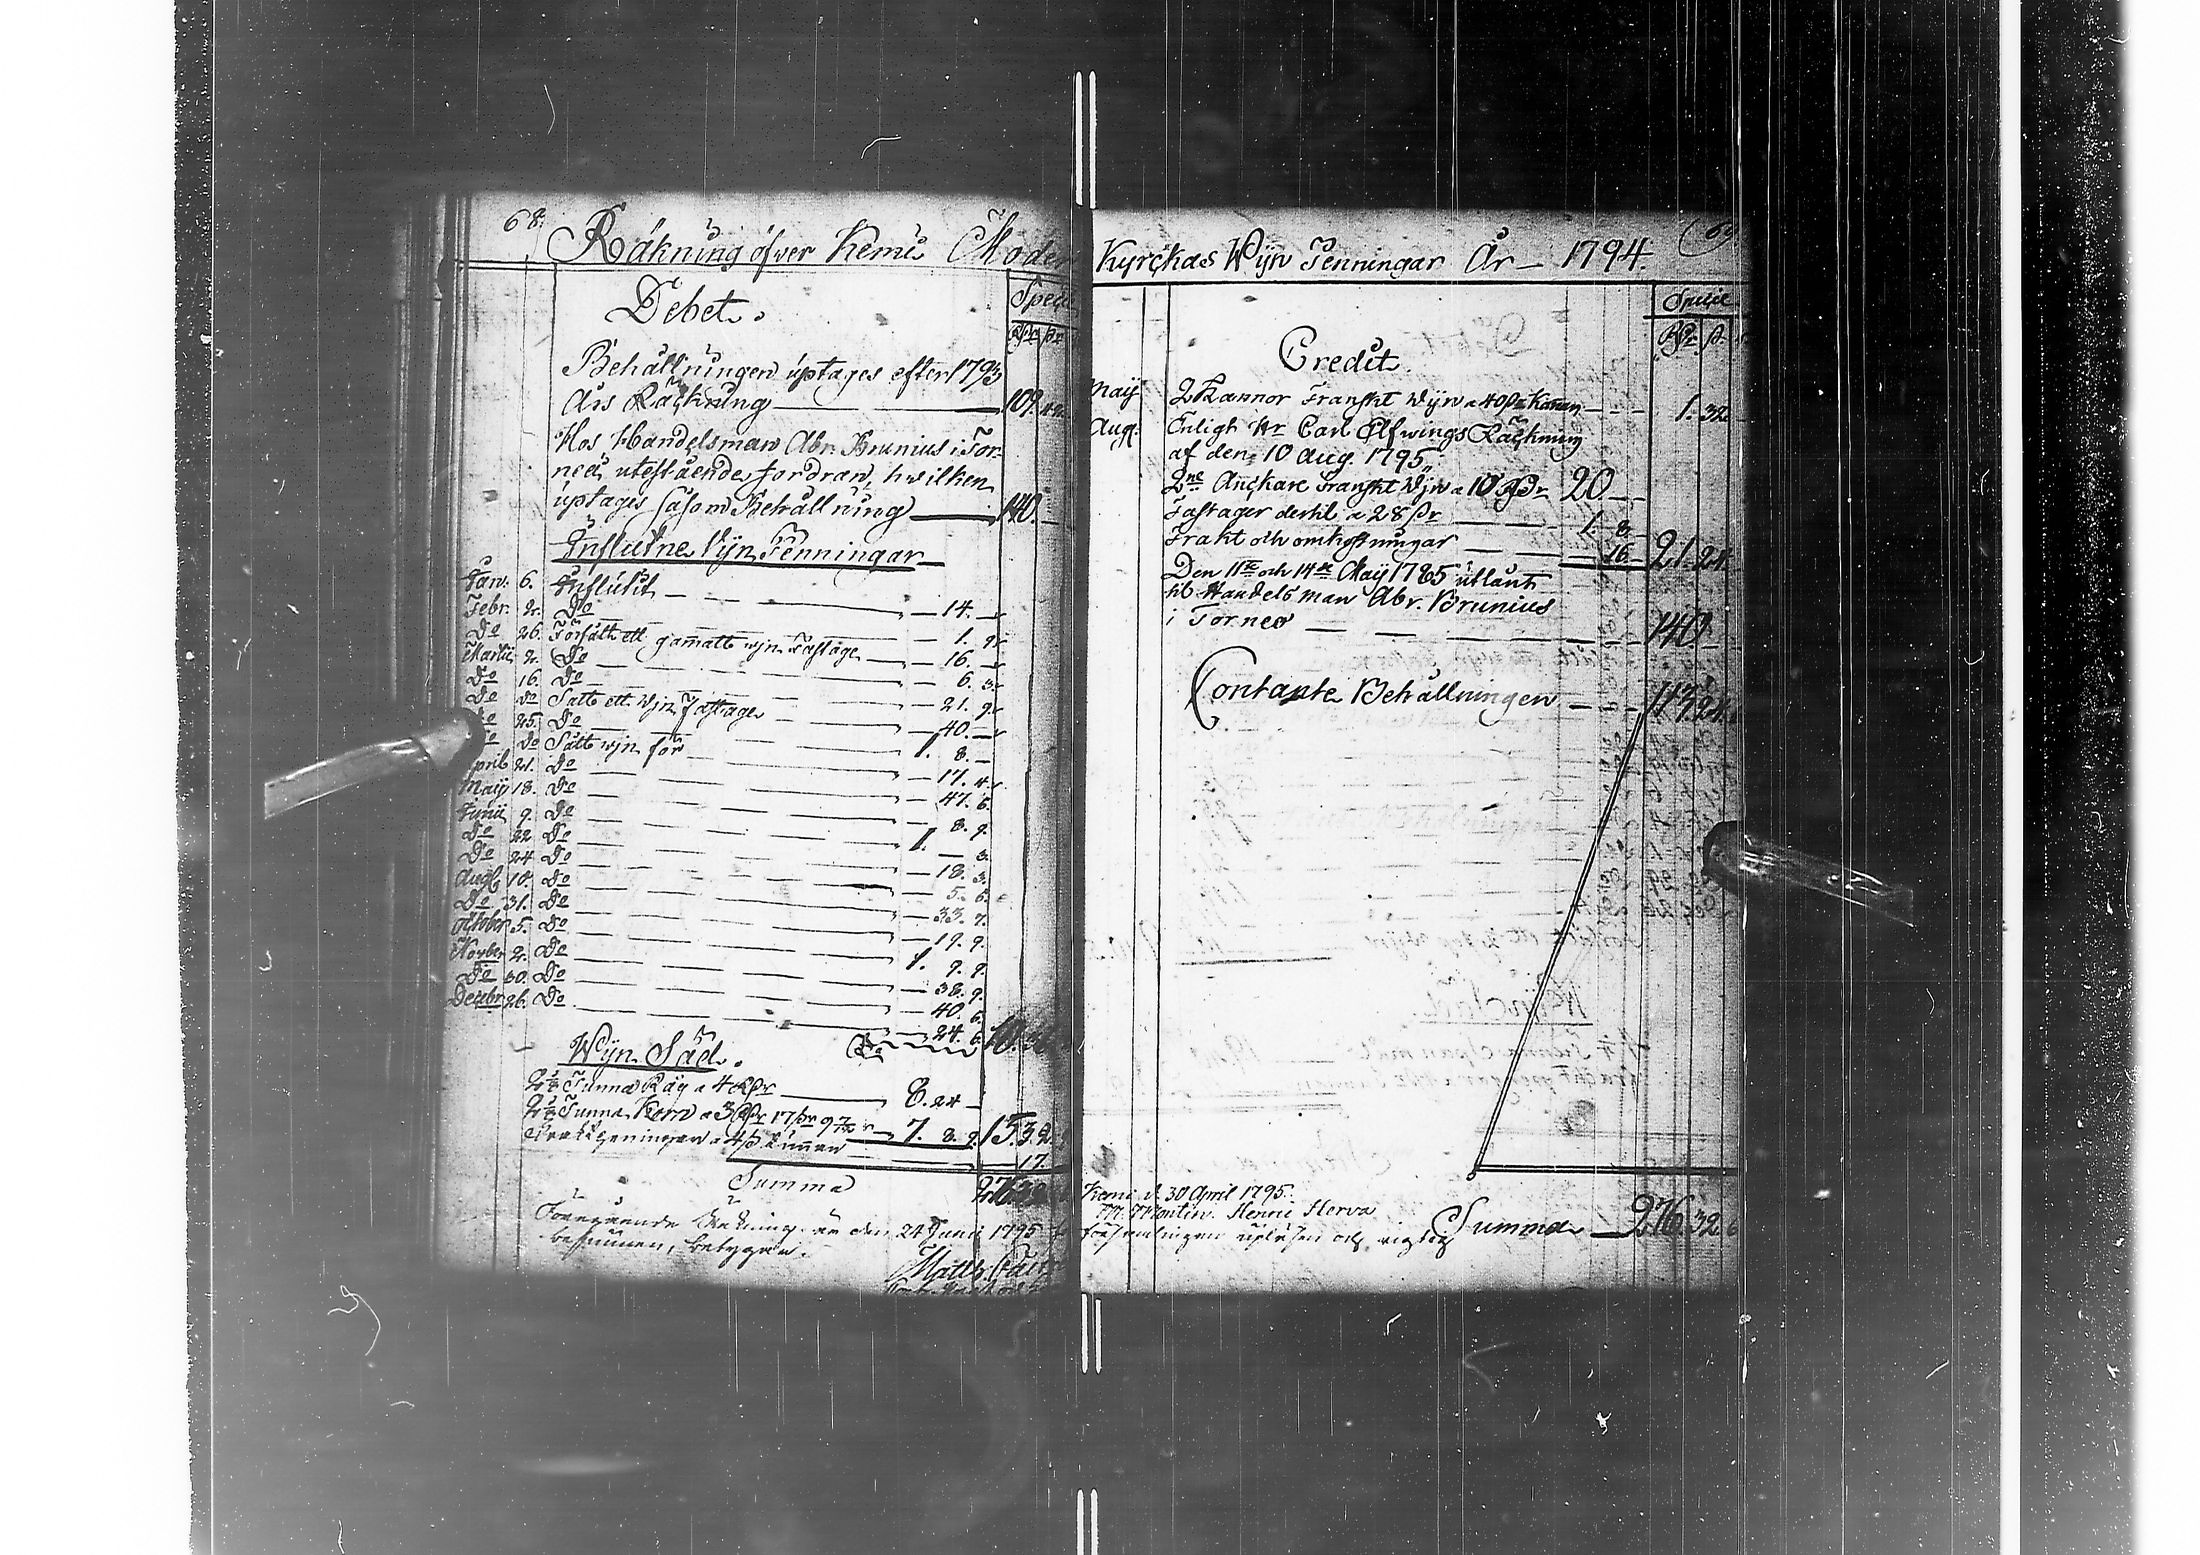 68.
Räkning öfwer Kemi Moder
Debet.
Specie
Behållningen uptages efter 1793
Års Räckning 109. 42
Hos Handelsman Abr. Brunius i Tor-
neå uteslående fordran, hwilken
uptages såsom Behållning 140.
Influtne Wijn Penningar
Jan. 6. Influtit 14.
Febr. 2. Do 1. 9
Do 26. Försålt ett gammalt wijn Fastage 16.
Martii 2. Do 6. 3
Do 16. Do 21. 9
Do Do Sålt ett Wijn Fastage 40.
25. Do 1. 8.
Do Sålt wijn för 17. 4
April 21. Do 47. 6.
Maij 18. Do 8. 9.
Junii 9. Do 1. 3.
Do 22 Do 18. 3.
Do 24 Do 5. 6.
Aug. 18. Do 33. 7.
Do 31. Do 19. 9.
October 5. Do 1. 9. 9.
Novber 2. Do 38. 9.
Do 30. Do 40. 6.
Decebr 26. Do 24. 6. 10.
Wijn Säd.
2½ Tunna Råg a 4 Rdr 8. 24
2½ Tunna Korn a 3 Rdr 17 sr 7. 8. 9. 15. 32
a 4 ß 17.
Summa
Föregående Räkning är den 24 Junii 1795
befunnen, betygar.
Matth.
69
Kyrckas Wijn Penningar År 1794.
Credit.
Specie
Maij 2 Kannor Franskt Wijn a 40 ß Kannan 1. 32
Aug. Enligt Hr Carl Elfwings Räckning
af den 10 Aug. 1795,
2ne Anckare Franskt Wijn a 10 Rdr 20
Fastager dertil a 28 ßr 1. 8
Frakt och omkostningar 16. 21. 24.
Den 11te och 14de Maij 1785 utlånt
til Handelsman Abr. Brunius
i Torneo 140.
Contante Behållningen 113. 24.
Kemi d. 30 April 1795.
Henric Herva
församlingen upläsen och rigtig
Summa 276. 32. 6